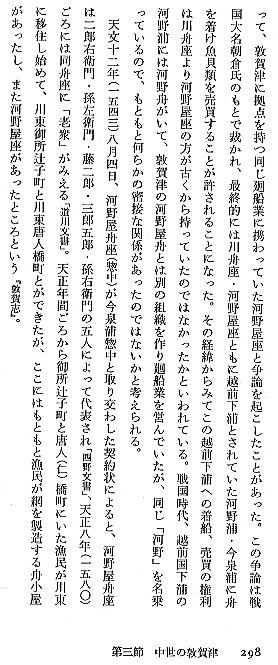 って、敦賀津に拠点を持つ同じ廻船業に携わっていた河野屋座と争論を起こしたことがあった。この争論は戦
国大名朝倉氏のもとで裁かれ、最終的には川舟座・河野屋座ともに越前下浦とされていた河野浦・今泉浦に舟
を着け魚貝類を売買することが許されることになった。その経緯からみてこの越前下浦への着船、売買の権利
は川舟座より河野屋座の方が古くから持っていたのではなかったかといわれている。戦国時代、越前国下浦の
河野浦には河野舟がいて、敦賀津の河野屋舟とは別の組織を作り廻船業を営んでいたが、同じ「河野」を名乗
っているので、もともと何らかの密接な関係があったのではないかと考えられる。
天文十二年(一五四三)八月四日、河野屋舟座(惣中)が今泉浦惣中と取り交わした契約状によると、河野屋舟座
は二郎右衛門・孫左衛門・藤二郎・三郎五郎・孫右衛門の五人によって代表され「西野文書」、天正八年(一五八〇)
ごろには同舟座に「老衆」がみえる「道川文書」。天正年間ごろから御所辻子町と唐人(仁)橋町にいた漁民が川東
に移住し始めて、川東御所辻子町と川東唐人橋町とができたが、ここにはもともと漁民が網を製造する舟小屋
があったし、また河野屋座があったところという『敦賀志』。
第三節 中世の敦賀津 298